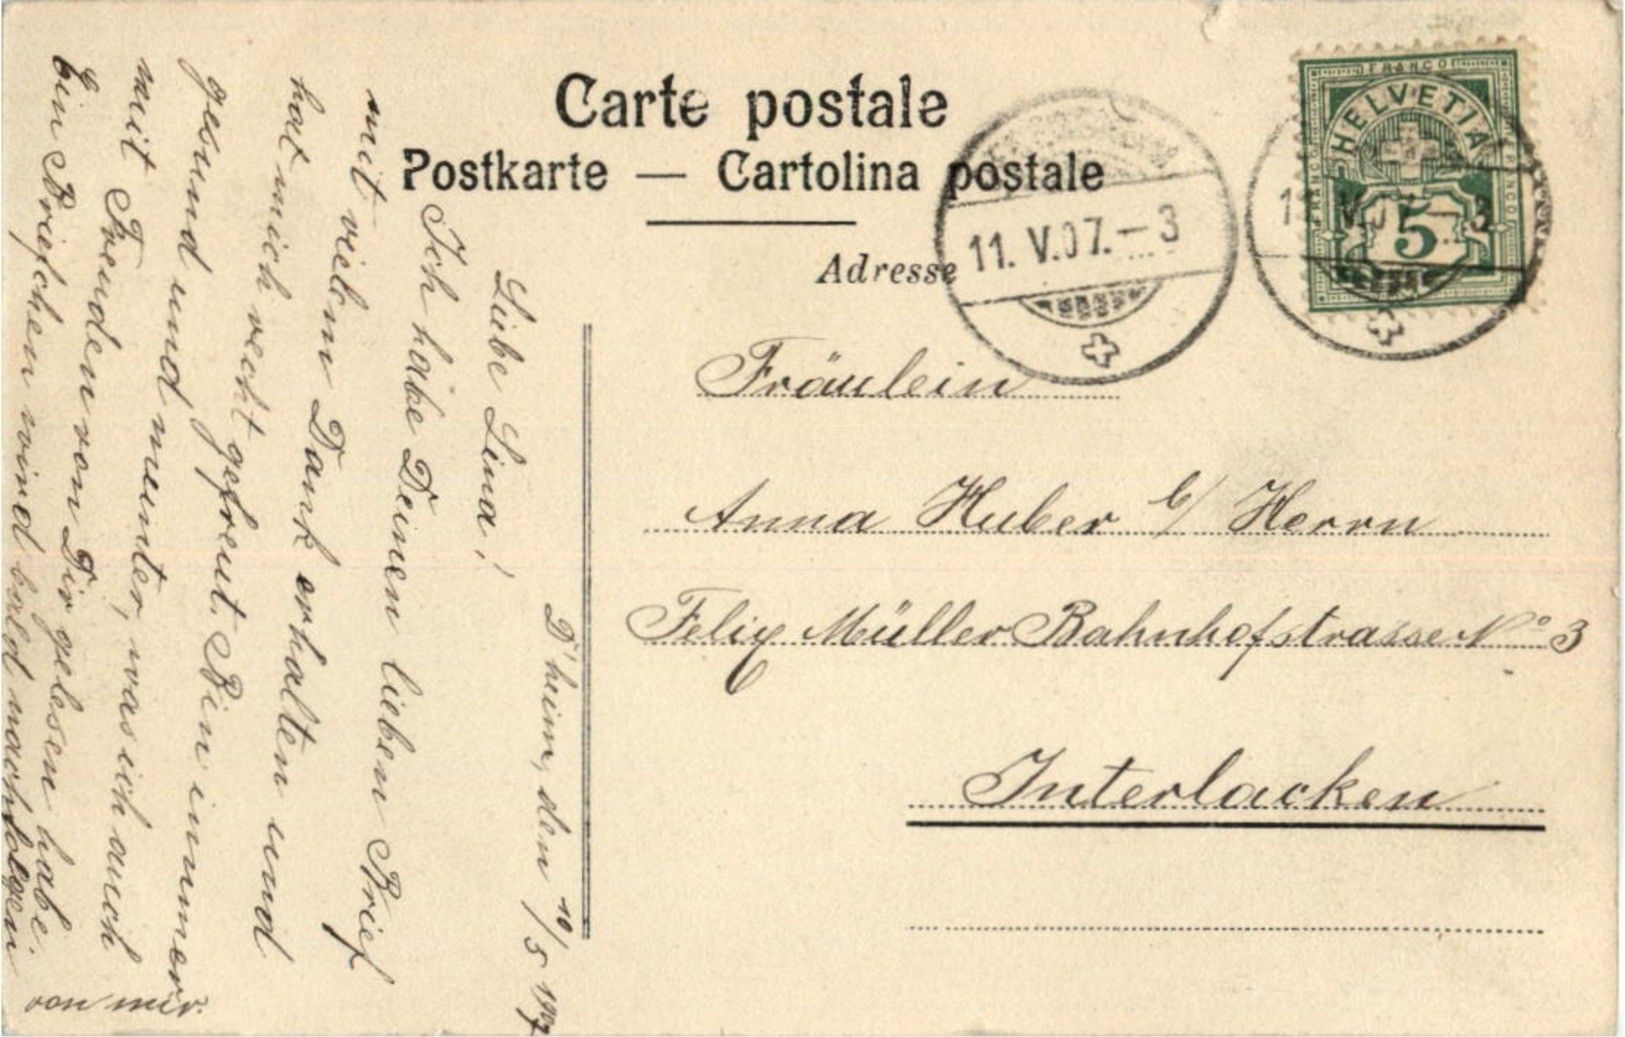 Carte postale
Postkarte — Cartolina postale
Adresse
FRANCO
HELVETIA
5
11. V. 07. – 3
Fräulein
Anna Huber b/ Herrn
Felix Müller Bahnhofstrasse No 3
Interlacken
D'heim, den 10/5 1907
Liebe Lina!
Ich habe Deinen lieben Brief
mit vielem Dank erhalten und
hat mich recht gefreut. Bin immer
gesund und munter, was ich auch
mit Freuden von Dir gelesen habe.
Ein Briefchen wird bald nachfolgen
von mir.